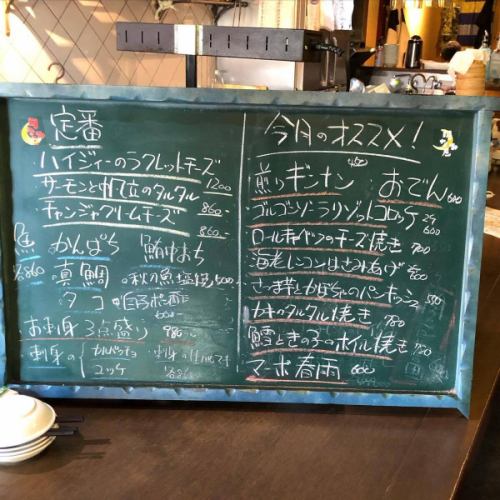 定番
ハイジィーのラクレットチーズ
サーモンと帆立のタルタル 1200
チャンジャクリームチーズ 860-
魚 かんぱち 鮪中おち
各860 真鯛 ・秋の魚塩焼
タコ
お刺身3点盛り 980-
・刺身の カルパッチョ ・刺身
ユッケ 各860
今月のオススメ!
煎りギンナン おでん 600
ゴルゴンゾーラリゾットコロッケ
ロールキャベツのチーズ焼き 700
海老レンコンはさみあげ
さつま芋とかぼちゃのパンキッシュ 550
カキのタルタル焼き 780
鱈ときの子のホイル焼き 780
マーボ春雨 600